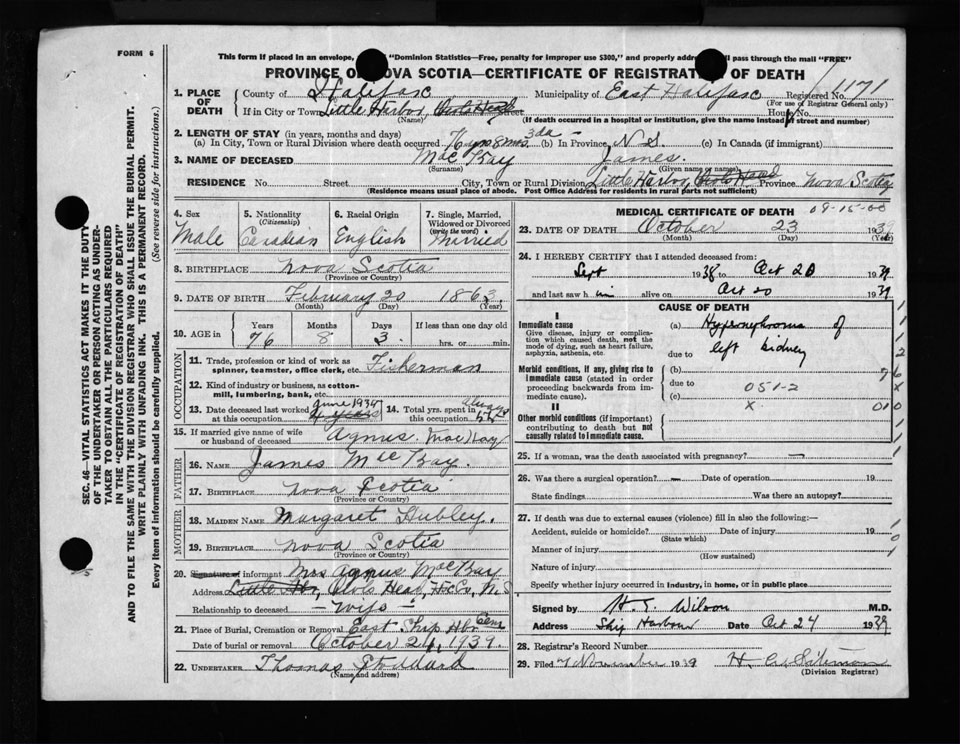 FORM 6
This form if placed in an envelope, "Dominion Statistics—Free, penalty for improper use $300," and properly addre ll pass through the mail "FREE"
PROVINCE O OVA SCOTIA—CERTIFICATE OF REGISTRATI OF DEATH
1. PLACE OF DEATH County of Halifax Municipality of East Halifax Registered No. 1171
(For use of Registrar General only)
If in City or Town Little Harbor, Owls Head Street House No.
(Name) (If death occurred in a hospital or institution, give the name instead of street and number)
2. LENGTH OF STAY (in years, months and days)
(a) In City, Town or Rural Division where death occurred 76 yrs 8 mos 3 da — (b) In Province N.S. (c) In Canada (if immigrant)
3. NAME OF DECEASED MacKay James.
(Surname) (Given name or names)
RESIDENCE No. Street City, Town or Rural Division Little Harbor, Owls Head Province Nova Scotia
(Residence means usual place of abode. Post Office Address for residents in rural parts not sufficient)
4. Sex Male
5. Nationality (Citizenship) Canadian
6. Racial Origin English
7. Single, Married, Widowed or Divorced (Write the word) Married
8. BIRTHPLACE Nova Scotia
(Province or Country)
9. DATE OF BIRTH February 20 1863.
(Month) (Day) (Year)
10. AGE in Years 76 Months 8 Days 3. If less than one day old hrs. or min.
OCCUPATION
11. Trade, profession or kind of work as spinner, teamster, office clerk, etc. Fisherman
12. Kind of industry or business, as cotton-mill, lumbering, bank, etc.
13. Date deceased last worked at this occupation June 1934
14. Total yrs. spent in this occupation
15. If married give name of wife or husband of deceased Agnus. MacKay
FATHER
16. NAME James MacKay.
17. BIRTHPLACE Nova Scotia
(Province or Country)
MOTHER
18. MAIDEN NAME Margaret Hubley.
19. BIRTHPLACE Nova Scotia
(Province or Country)
20. Signature of informant Mrs Agnus MacKay
Address Little Hbr, Owls Head, Hfx Co, N.S
Relationship to deceased — Wife —
21. Place of Burial, Cremation or Removal East Ship Hbr Cem
Date of burial or removal October 24, 1939.
22. UNDERTAKER Thomas Stoddard
(Name and address)
MEDICAL CERTIFICATE OF DEATH 08-15-00
23. DATE OF DEATH October 23 1939
(Month) (Day) (Year)
24. I HEREBY CERTIFY that I attended deceased from:
Sept 1938 to Oct 20 1939
and last saw h im alive on Oct 20 1939
CAUSE OF DEATH
I
Immediate cause (a) Hypernephroma of
Give disease, injury or complication which caused death, not the mode of dying, such as heart failure, asphyxia, asthenia, etc.
due to left kidney
Morbid conditions, if any, giving rise to immediate cause (stated in order proceeding backwards from immediate cause).
(b)
due to 051-2
(c) X
II
Other morbid conditions (if important) contributing to death but not causally related to immediate cause.
25. If a woman, was the death associated with pregnancy? —
26. Was there a surgical operation? — Date of operation 19
State findings Was there an autopsy?
27. If death was due to external causes (violence) fill in also the following:—
Accident, suicide or homicide? Date of injury 19
(State which)
Manner of injury
(How sustained)
Nature of injury
Specify whether injury occurred in industry, in home, or in public place
Signed by H. E. Wilson M.D.
Address Ship Harbour Date Oct 24 1939
28. Registrar's Record Number
29. Filed 7 November 1939
(Division Registrar)
SEC. 46—VITAL STATISTICS ACT MAKES IT THE DUTY
OF THE UNDERTAKER OR PERSON ACTING AS UNDER-
TAKER TO OBTAIN ALL THE PARTICULARS REQUIRED
IN THE "CERTIFICATE OF REGISTRATION OF DEATH"
AND TO FILE THE SAME WITH THE DIVISION REGISTRAR WHO SHALL ISSUE THE BURIAL PERMIT.
WRITE PLAINLY WITH UNFADING INK. THIS IS A PERMANENT RECORD.
Every item of information should be carefully supplied. (See reverse side for instructions.)